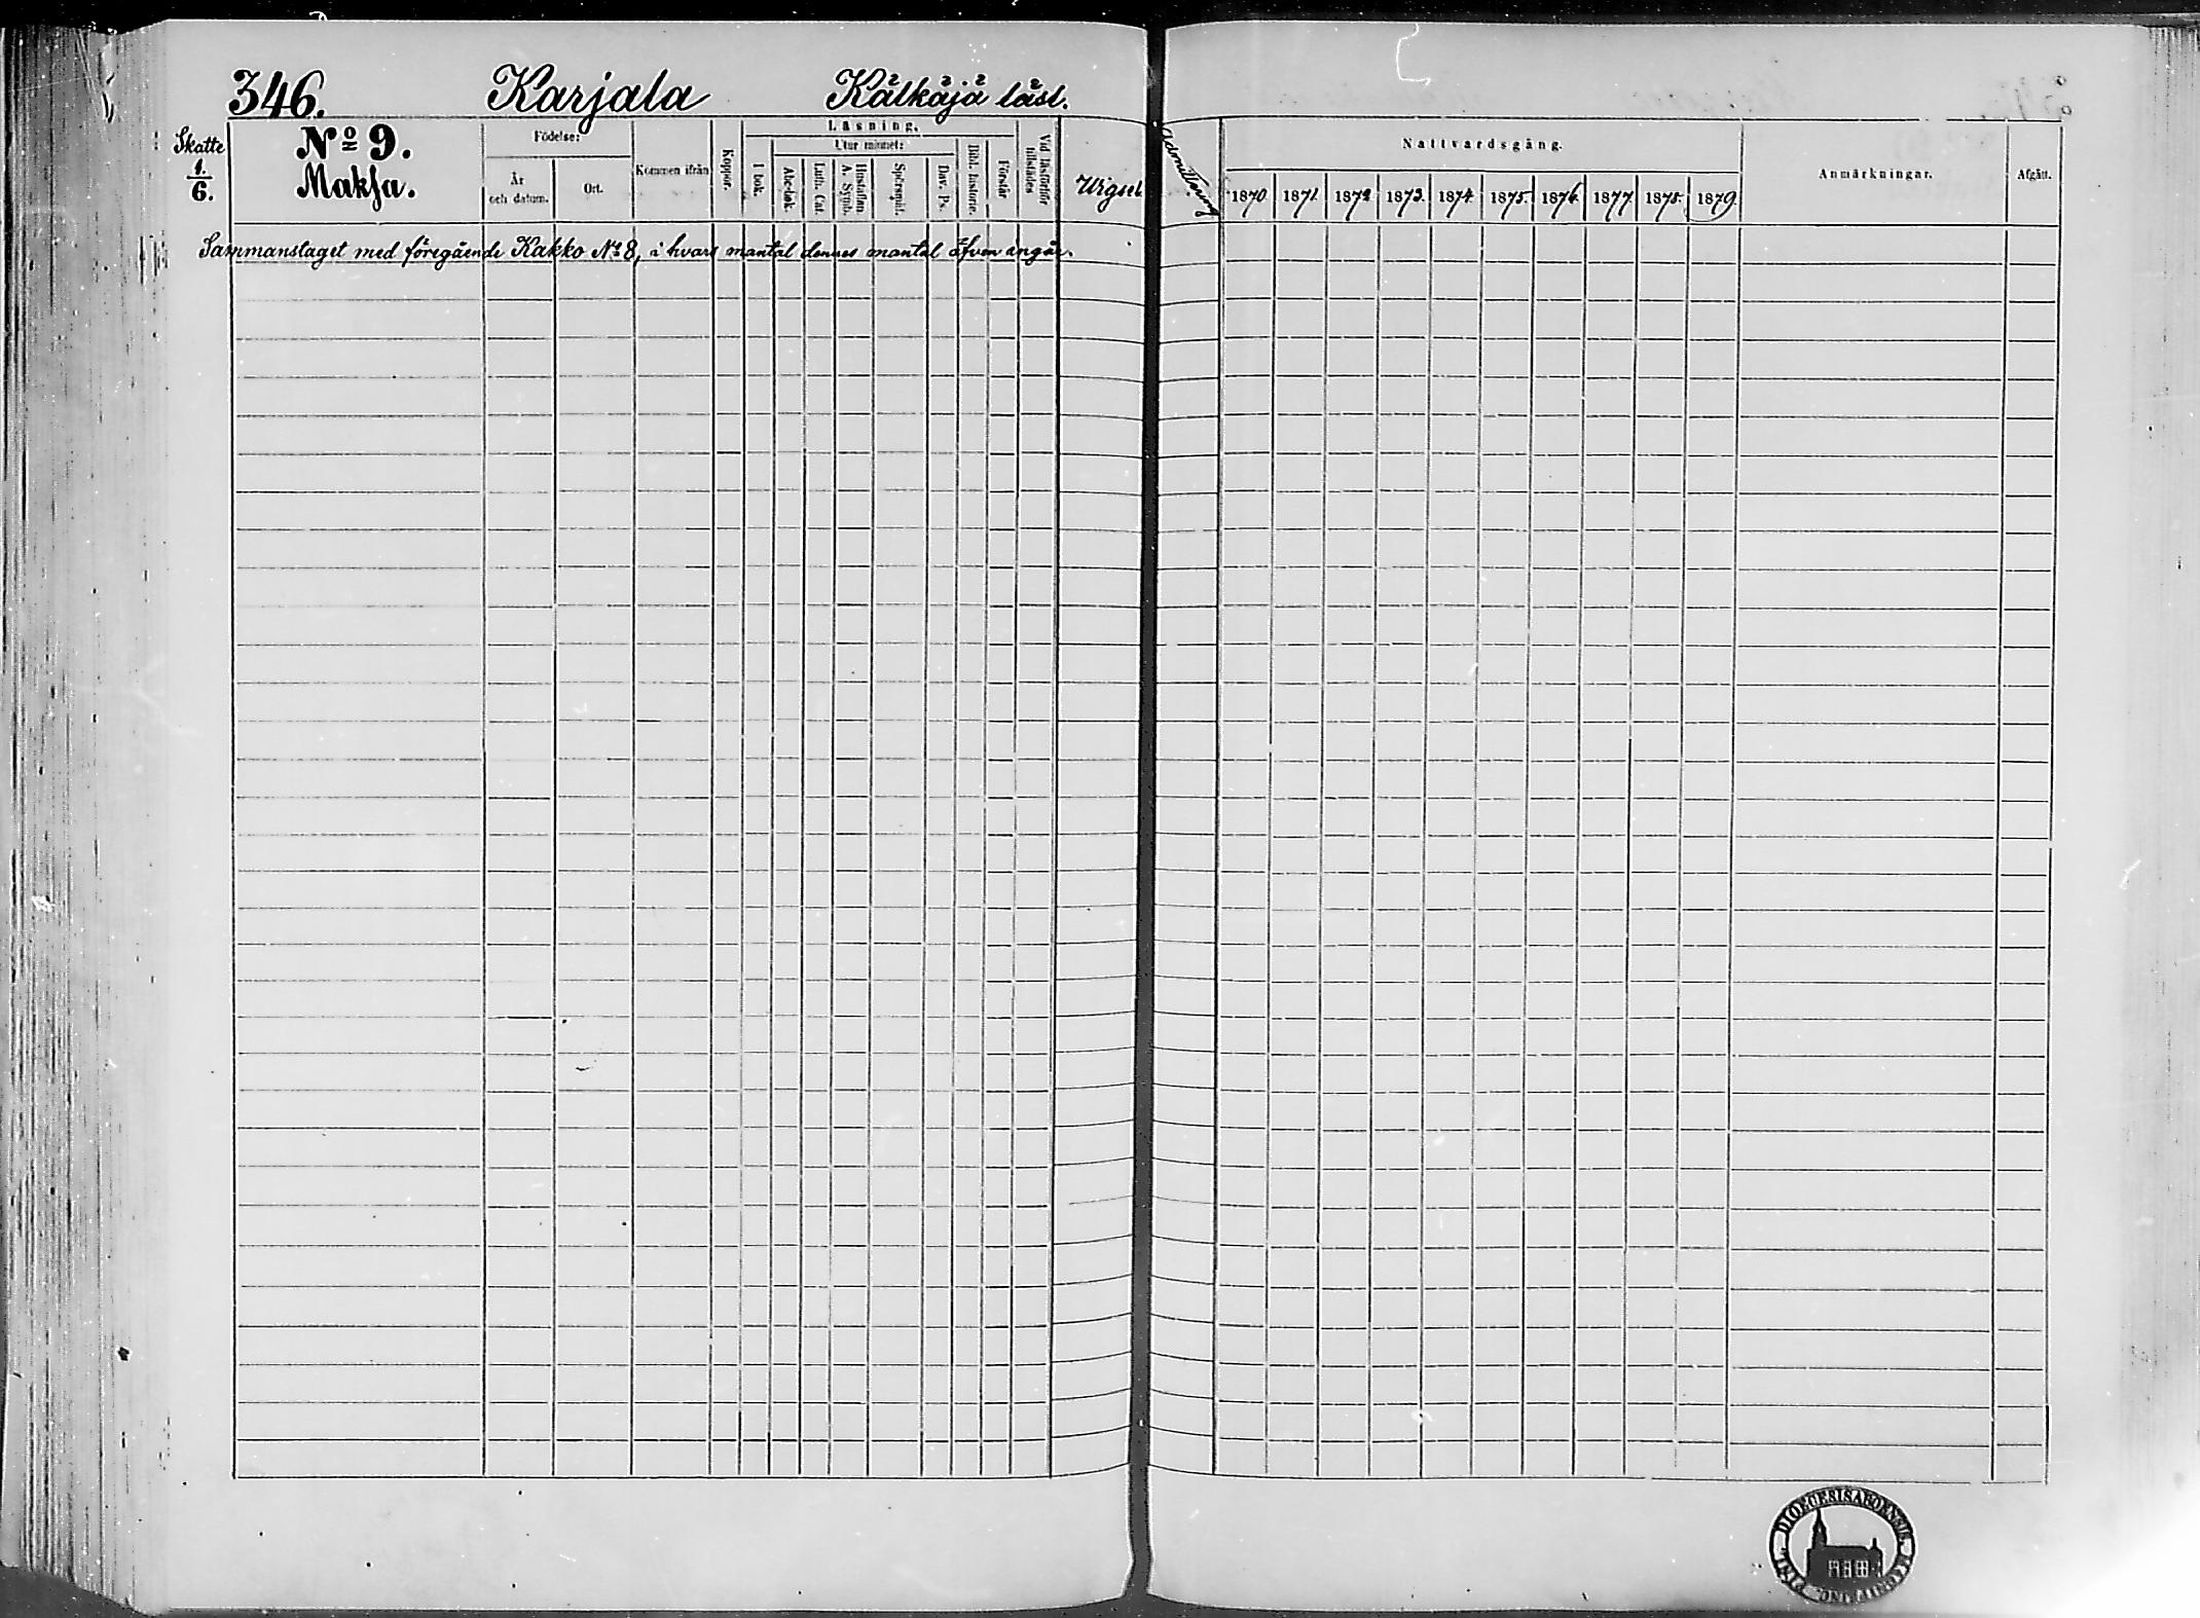 346. Karjala Kälkäjä läsl.
Skatte
1/6.
No 9.
Maksa.
Födelse:
År
och datum.
Ort.
Kommen ifrån
Koppor.
Läsning.
I bok.
Utur minnet:
Abc-bok.
Luth. Cat.
Hustaflan
A. Symb.
Spörsmål.
Dav. Ps.
Bibl. historie.
Förstår
Vid läsförhör
tillstädes
Wigsel.
Sammanslaget med föregående Kakko No 8, i hvars mantal dennes mantal äfven ingår.
Admittering
Nattvardsgång.
1870 1871. 1872 1873. 1874 1875. 1876. 1877. 1878. 1879
Anmärkningar.
Afgått.